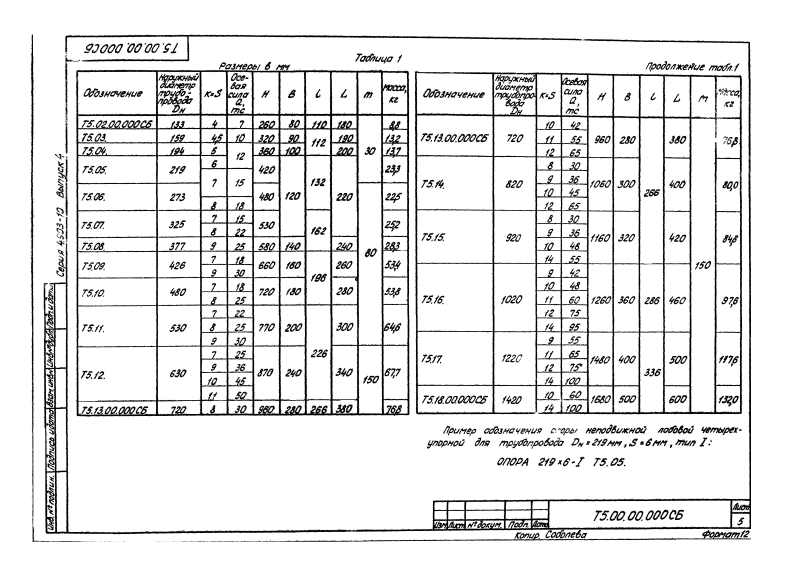 Т5.00.00.000СБ
Таблица 1
Размеры в мм
Обозначение | Наружный диаметр трубопровода Dн | K=S | Осевая сила Q, тс | H | B | l | L | m | Масса, кг
Т5.02.00.000СБ | 133 | 4 | 7 | 260 | 80 | 110 | 180 | 30 | 8,8
Т5.03. | 159 | 4,5 | 10 | 320 | 90 | 112 | 190 | 13,2
Т5.04. | 194 | 5 | 12 | 360 | 100 | 200 | 13,7
Т5.05. | 219 | 6 | 420 | 120 | 132 | 220 | 23,3
7 | 15
Т5.06. | 273 | 480 | 22,5
8 | 18
Т5.07. | 325 | 7 | 15 | 530 | 162 | 60 | 25,2
8 | 22
Т5.08. | 377 | 9 | 25 | 580 | 140 | 240 | 28,3
Т5.09. | 426 | 7 | 18 | 660 | 160 | 198 | 260 | 53,4
9 | 30
Т5.10. | 480 | 7 | 18 | 720 | 180 | 280 | 53,8
8 | 25
Т5.11. | 530 | 7 | 22 | 770 | 200 | 226 | 300 | 64,6
8 | 25
9 | 30
Т5.12. | 630 | 7 | 25 | 870 | 240 | 340 | 150 | 67,7
9 | 36
10 | 45
11 | 50
Т5.13.00.000СБ | 720 | 8 | 30 | 960 | 280 | 266 | 380 | 76,8
Продолжение табл.1
Обозначение | Наружный диаметр трубопровода Dн | K=S | Осевая сила Q, тс | H | B | l | L | m | Масса, кг
Т5.13.00.000СБ | 720 | 10 | 42 | 960 | 280 | 266 | 380 | 150 | 76,8
11 | 55
12 | 65
Т5.14. | 820 | 8 | 30 | 1060 | 300 | 400 | 80,0
9 | 36
10 | 45
12 | 65
Т5.15. | 920 | 8 | 30 | 1160 | 320 | 420 | 84,8
9 | 36
10 | 48
14 | 55
Т5.16. | 1020 | 9 | 42 | 1260 | 360 | 286 | 460 | 97,6
10 | 48
11 | 60
12 | 75
14 | 95
Т5.17. | 1220 | 9 | 55 | 1480 | 400 | 336 | 500 | 117,6
11 | 65
12 | 75
14 | 100
Т5.18.00.000СБ | 1420 | 10 | 60 | 1680 | 500 | 600 | 132,0
14 | 100
Пример обозначения опоры неподвижной лобовой четырех-
упорной для трубопровода Dн = 219 мм, S = 6 мм, тип I:
ОПОРА 219×6-I Т5.05.
Серия 4.903-10 Выпуск 4
Инв.№ подлин. Подпись и дата Взам.инв.№ Инв.№ дубл. Подп. и дата
Изм. Лист № докум. Подп. Дата
Т5.00.00.000СБ
Лист
5
Копир. Соболева
Формат 12